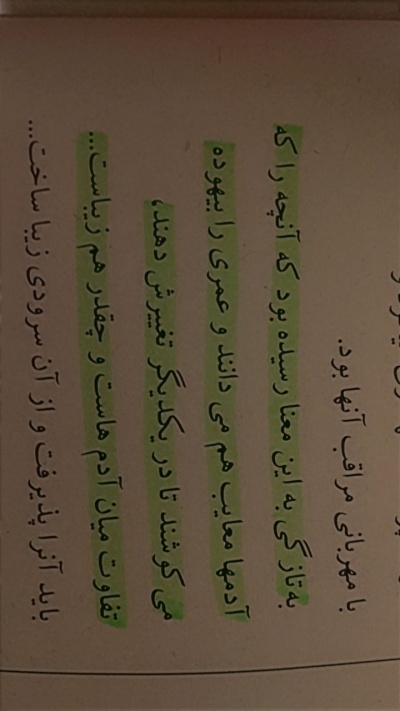 با مهربانی مراقب آنها بود.
به تازگی به این معنا رسیده بود که آنچه را که
آدمها معایب هم می دانند و عمری را بیهوده
می کوشند تا در یکدیگر تغییرش دهند،
تفاوت میان آدم هاست و چقدر هم زیباست...
باید آنرا پذیرفت و از آن سرودی زیبا ساخت...